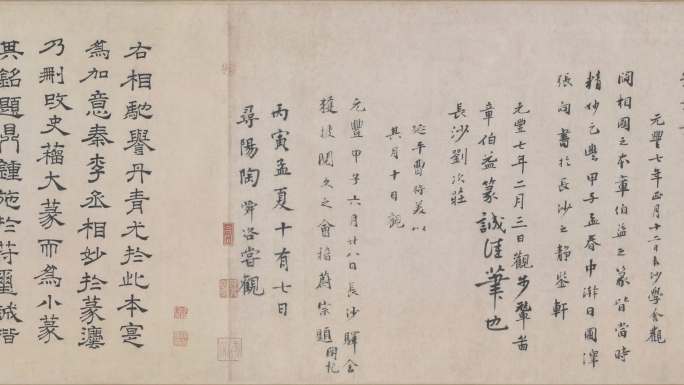 元豐七年正月十二日長沙學舍觀
閻相國之本章伯益之篆皆當時
精妙元豐甲子孟春中澣日圃澤
張向書於長沙之靜鑒軒
元豐七年二月三日觀步輦圖
章伯益篆誠佳筆也
長沙劉次莊
延平曹將美以
其月十日觀
元豐甲子六月廿八日長沙驛舍
獲披閱久之會稽蔚宗題
丙寅孟夏十有七日
尋陽陶舜咨嘗觀
右相馳譽丹青尤於此本寔
為加意秦李丞相妙於篆灋
乃刪改史籀大篆而為小篆
其銘題鼎鍾施於符璽誠楷